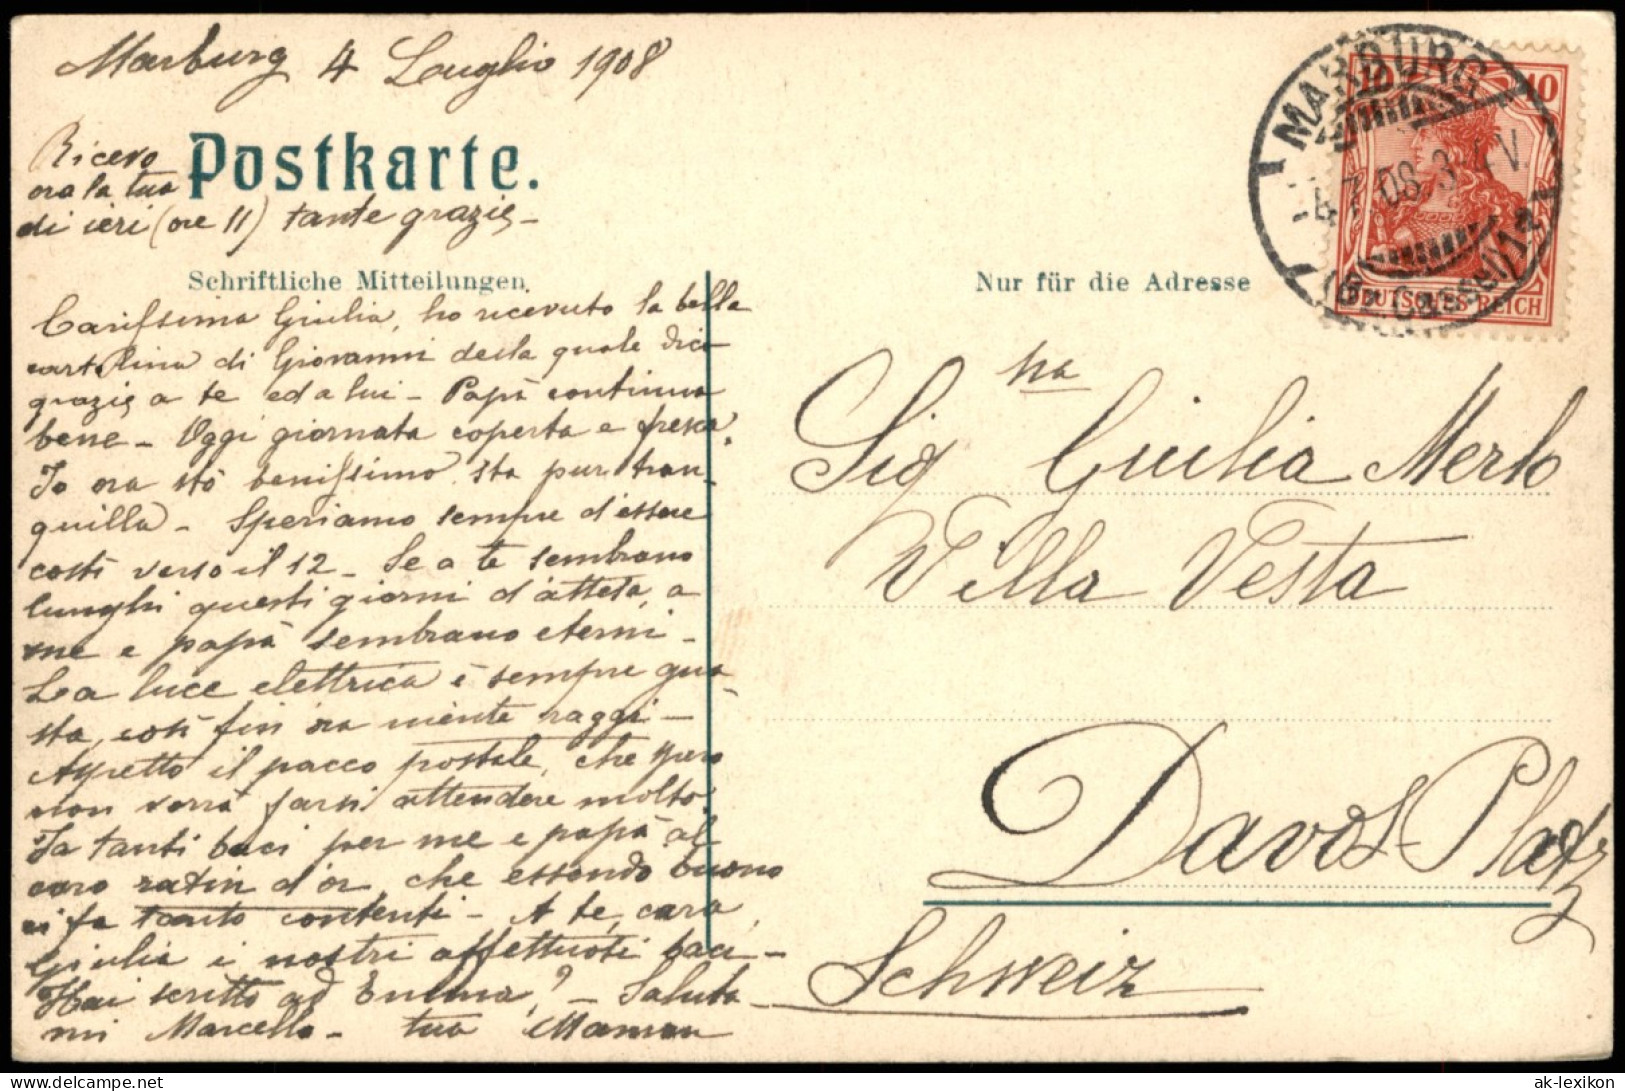 Marburg 4 Luglio 1908
Ricevo
ora la tua
di ieri (ore 11) tante grazie –
Postkarte.
Schriftliche Mitteilungen
Carissima Giulia, ho ricevuto la bella
cartolina di Giovanni della quale dico
grazie a te ed a lui – Papà continua
bene – Oggi giornata coperta e fresca.
Io ora stò benissimo, sta pur tran-
quilla – Speriamo sempre d'essere
costì verso il 12 – Se a te sembrano
lunghi questi giorni d'attesa, a
me e papà sembrano eterni –
La luce elettrica è sempre gua-
sta, così fin ora niente raggi –
Aspetto il pacco postale, che spero
non vorrà farsi attendere molto.
Fa tanti baci per me e papà al
caro ratin d'or, che essendo buono
ci fa tanto contenti – A te, cara
Giulia i nostri affettuosi baci –
Hai scritto ad Emma? – Saluta-
mi Marcello – tua Mamma
Nur für die Adresse
MARBURG
-4.7.08.3-4 V.
(Bz. Cassel) 1
10 10
DEUTSCHES REICH
Sig na Giulia Merlo
Villa Vesta
Davos-Platz
Schweiz
ak-lexikon